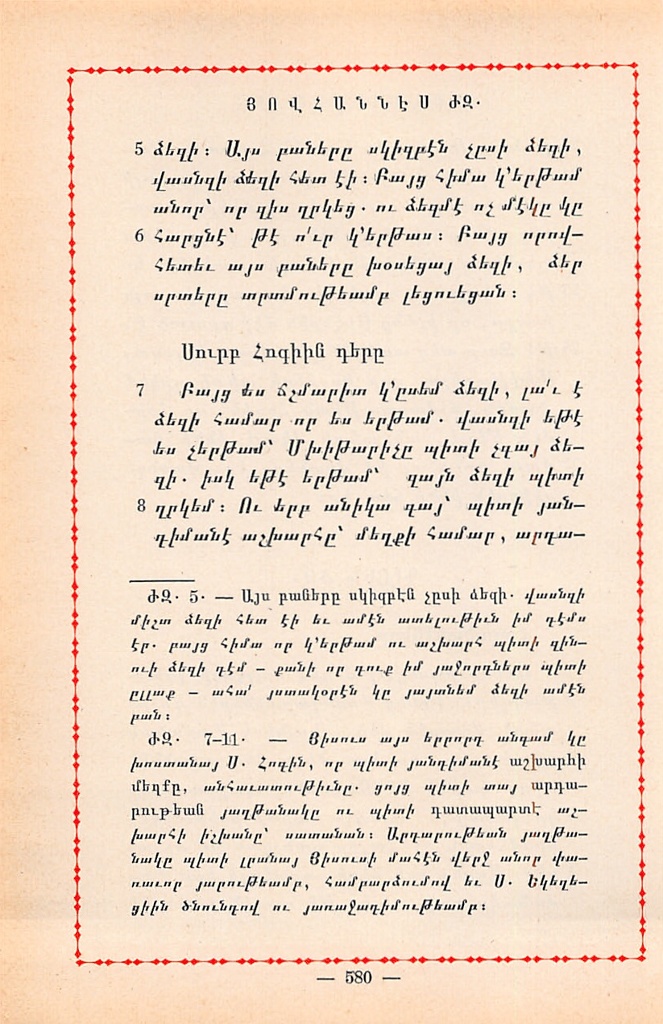 ՅՈՎՀԱՆՆԷՍ ԺԶ.
5 ձեզի։ Այս բաները սկիզբէն չըսի ձեզի,
վասնզի ձեզի հետ էի։ Բայց հիմա կ՚երթամ
անոր՝ որ զիս ղրկեց. ու ձեզմէ ոչ մէկը կը
6 հարցնէ՝ թէ ո՛ւր կ՚երթաս։ Բայց որով–
հետեւ այս բաները խօսեցայ ձեզի, ձեր
սրտերը տրտմութեամբ լեցուեցան։
Սուրբ Հոգիին դերը
7 Բայց ես ճշմարիտ կ՚ըսեմ ձեզի, լա՛ւ է
ձեզի համար որ ես երթամ. վասնզի եթէ
ես չերթամ՝ Մխիթարիչը պիտի չգայ ձե–
զի. իսկ եթէ երթամ՝ զայն ձեզի պիտի
8 ղրկեմ։ Ու երբ անիկա գայ՝ պիտի յան–
դիմանէ աշխարհը՝ մեղքի համար, արդա–
ԺԶ. 5. — Այս բաները սկիզբէն չըսի ձեզի. վասնզի
միշտ ձեզի հետ էի եւ ամէն ատելութիւն իմ դէմս
էր. բայց հիմա որ կ՚երթամ ու աշխարհ պիտի զին–
ուի ձեզի դէմ – քանի որ դուք իմ յաջորդներս պիտի
ըլլաք – ահա՛ յստակօրէն կը յայտնեմ ձեզի ամէն
բան։
ԺԶ. 7–11. — Յիսուս այս երրորդ անգամ կը
խոստանայ Ս. Հոգին, որ պիտի յանդիմանէ աշխարհի
մեղքը, անհաւատութիւնը. ցոյց պիտի տայ արդա–
րութեան յաղթանակը ու պիտի դատապարտէ աշ–
խարհի իշխանը՝ սատանան։ Արդարութեան յաղթա–
նակը պիտի լրանայ Յիսուսի մահէն վերջ անոր փա–
ռաւոր յարութեամբ, համբարձումով եւ Ս. Եկեղե–
ցիին ծնունդով ու յառաջադիմութեամբ։
— 580 —